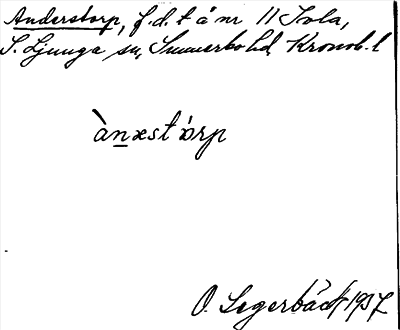 Anderstorp, f.d. t å nr 11 Tvla,
S. Ljunga sn, Sunnerbo hd Kronob. l
ànæst órp
O. Segerbäck 1937